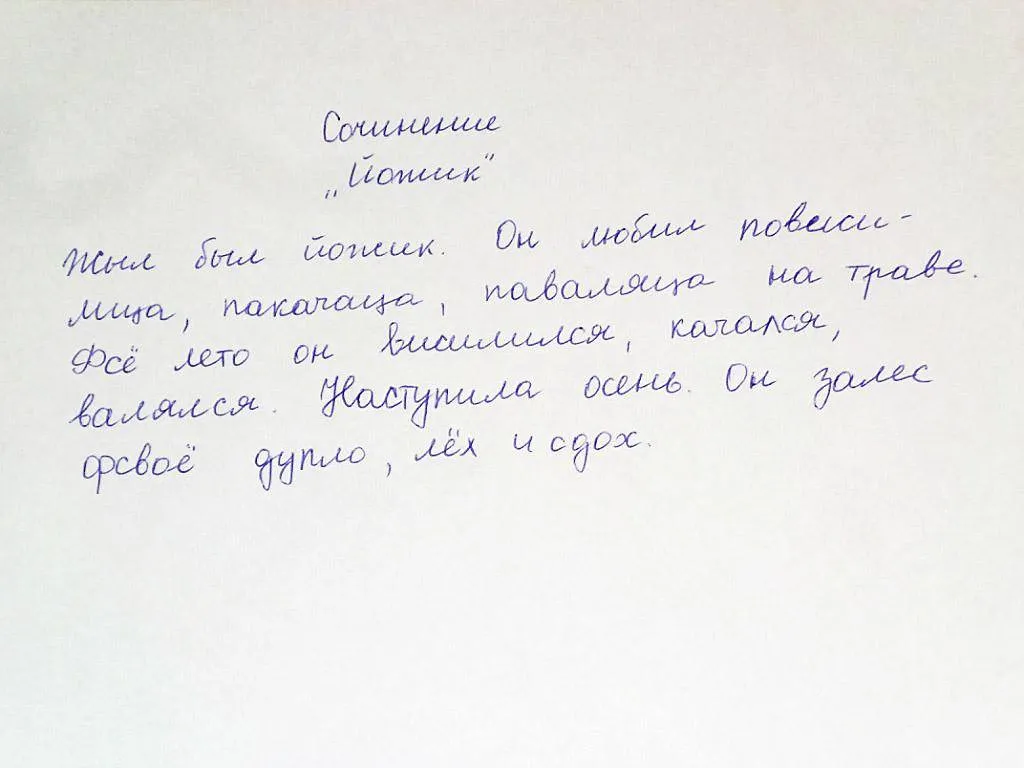 Сочинение
„Йожик"
Жыл был йожик. Он любил повиси-
мица, пакачаца, паваляца на траве.
Фсё лето он висилился, качался,
валялся. Наступила осень. Он залес
фсвоё дупло, лёх и сдох.